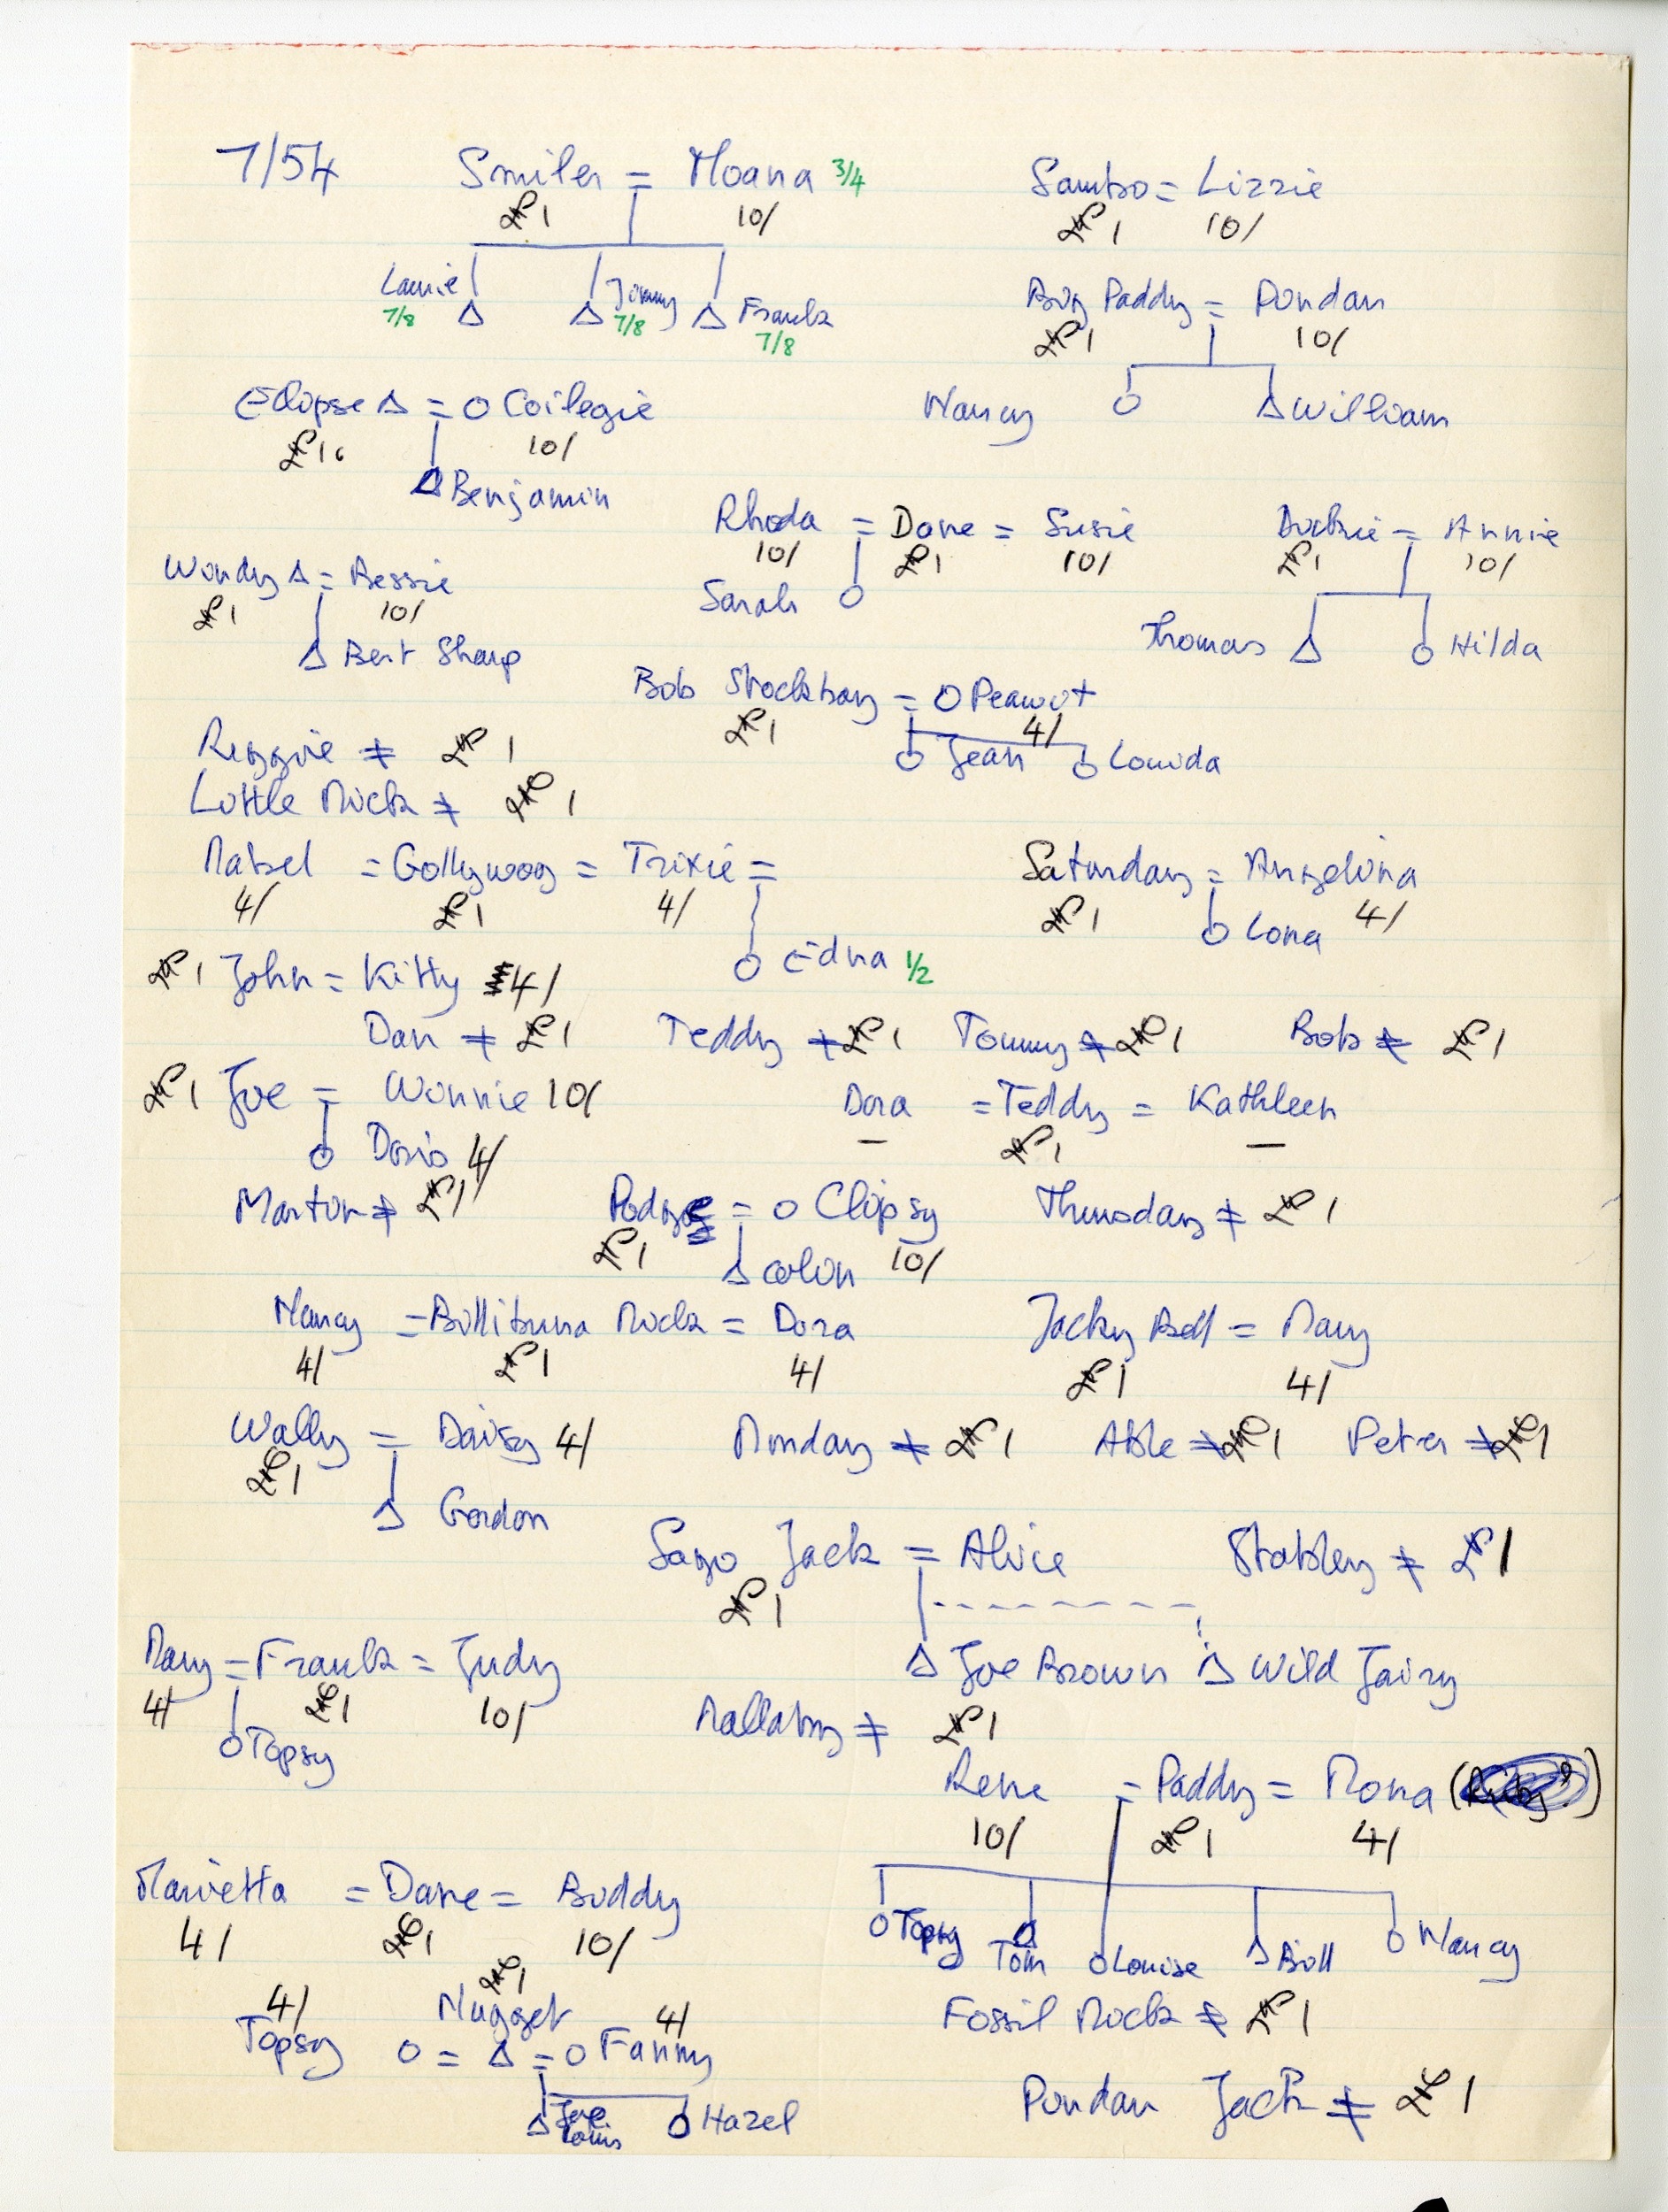 7/54 Smiler = Moana 3/4 Sambo = Lizzie
£1 10/ £1 10/
Laurie Jimmy Frank Big Paddy = Pundan
7/8 7/8 7/8 £1 10/
Eclipse Δ = O Coilegie Nancy O Δ William
£1 10/
Δ Benjamin
Rhoda = Dave = Susie Dickie = Annie
10/ £1 10/ £1 10/
Wondy Δ = Bessie Sarah O
£1 10/
Δ Bert Sharp Thomas Δ O Hilda
Bob Stockboy = O Peanut
£1 4/
O Jean O Lowida
Reggie ≠ £1
Little Mick ≠ £1
Mabel = Gollywog = Trixie = Saturday = Angelina
4/ £1 4/ £1 4/
O Edna 1/2 O Lona
£1 John = Kitty 4/
Dan ≠ £1 Teddy ≠ £1 Tommy ≠ £1 Bob ≠ £1
£1 Joe = Winnie 10/ Dora = Teddy = Kathleen
O Doris 4/ — £1 —
Martin ≠ £1 Podge = O Clipsy Thursday ≠ £1
£1 10/
Δ Colin
Nancy = Billibuna Mick = Dora Jacky Bell = Mary
4/ £1 4/ £1 4/
Wally = Daisy 4/ Monday ≠ £1 Able ≠ £1 Peter ≠ £1
£1
Δ Gordon
Sago Jack = Alice Stabley ≠ £1
£1
Mary = Frank = Judy Δ Joe Brown Δ Wild Fairy
4/ £1 10/
O Topsy Mallaby ≠ £1
Rene = Paddy = Mona
10/ £1 4/
Marietta = Dave = Biddy
4/ £1 10/
O Topsy Δ Tom O Louise Δ Bill O Nancy
4/ £1 4/
Topsy O = Δ Nugget = O Fanny Fossil Mick ≠ £1
Δ Joe Louis O Hazel Pundan Jack ≠ £1